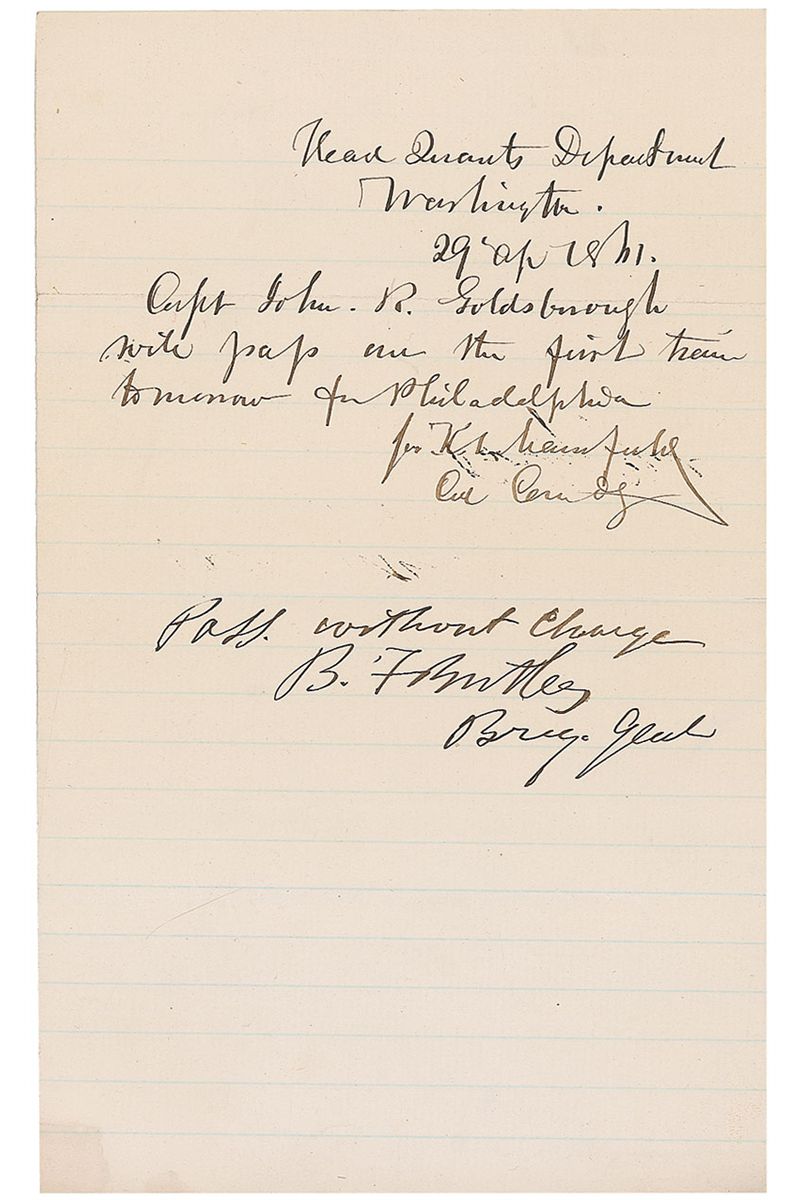 Head Quarts Department
Washington.
29 ap 1861.
Capt John. R. Goldsborough
will pass on the first train
tomorrow for Philadelphia
Mansfield
Col Comdg
Pass. without charge
B. F Butler
Brig. Genl